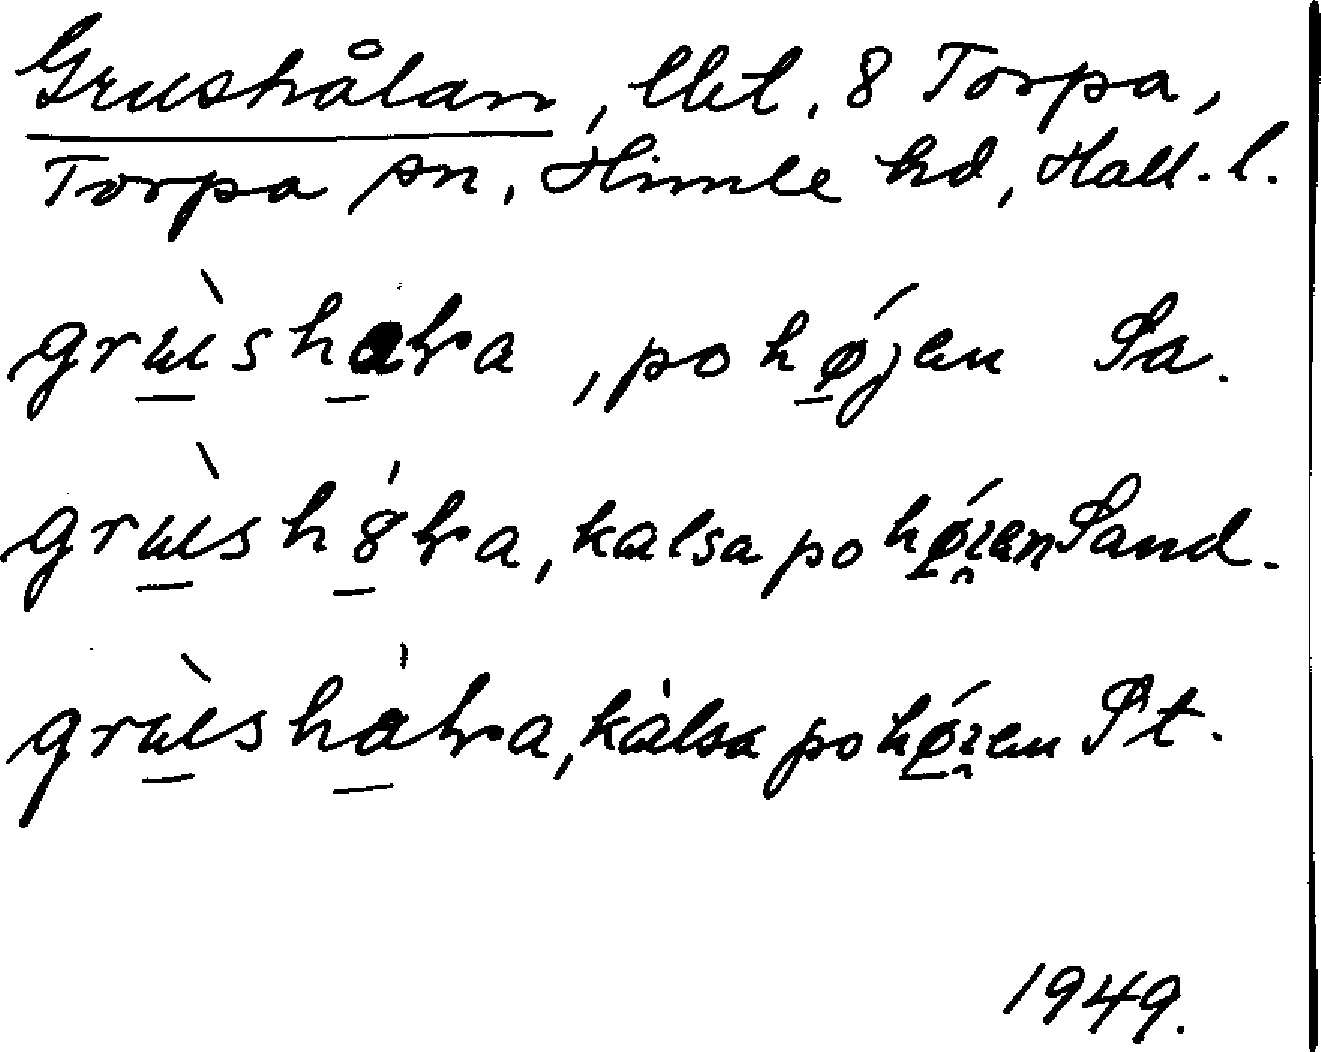 Grushålan, lht. 8 Torpa,
Torpa sn, Himle hd, Hall. l.
grùshaɫra, po hǿjen Sa.
grùsh8́ɫra, kalsa po hǿɪen Sand.
grùsháɫra, kálsa po hǿɪen St.
1949.